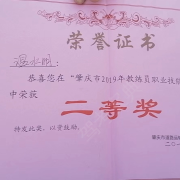 荣誉证书
恭喜您在“肇庆市2019年教练员职业技
中荣获
二等奖
特发此奖，以资鼓励。